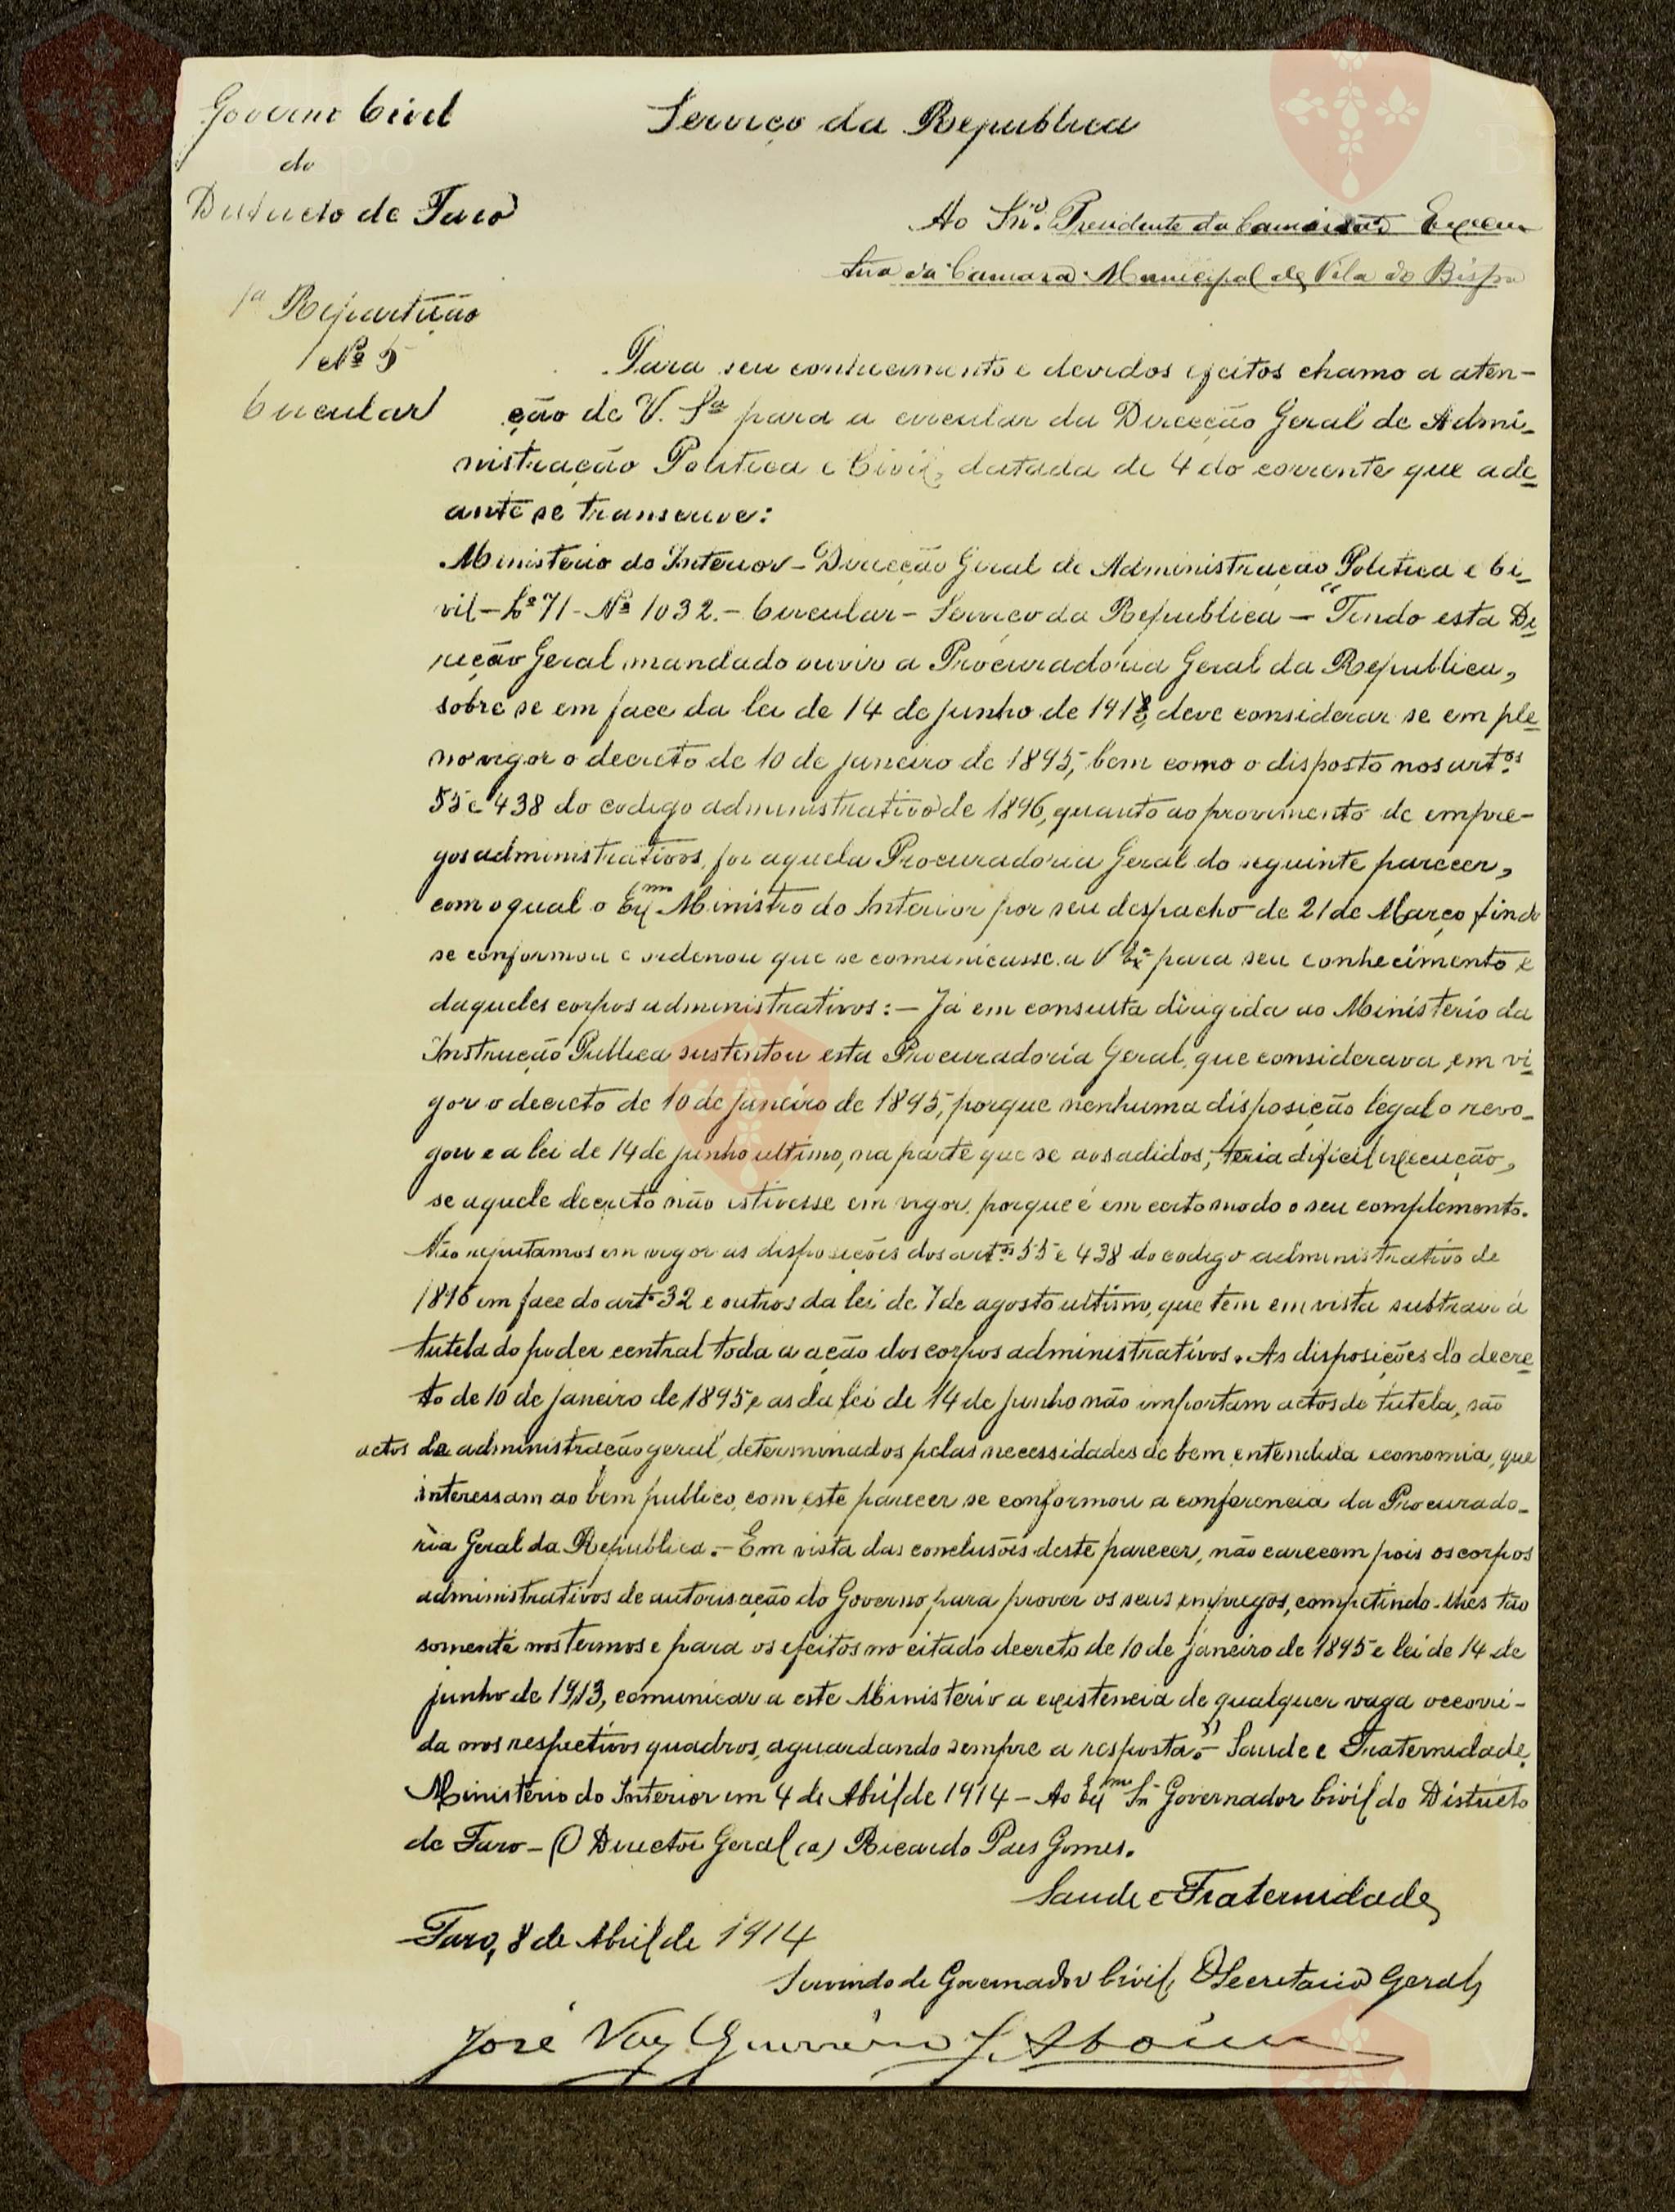 Governo Civil
do
Districto de Faro
Serviço da Republica
Ao Snr. Presidente da Comissão Execu
tiva da Camara Municipal de Vila do Bispo
1ª Repartição
Nº 5
Circular
Para seu conhecimento e devidos efeitos chamo a aten-
ção de V. Sª para a circular da Direcção Geral de Admi-
nistração Politica e Civil, datada de 4 do corrente que ade-
ante se transcreve:
Ministerio do Interior - Direcção Geral de Administração Politica e Ci-
vil - Lº 71 - Nº 1032. - Circular - Serviço da Republica - "Tendo esta Di-
reção Geral mandado ouvir a Procuradoria Geral da Republica,
sobre se em face da lei de 14 de junho de 1913, deve considerar se em ple-
no vigor o decreto de 10 de janeiro de 1895, bem como o disposto nos artos
55 e 438 do codigo administrativo de 1896, quanto ao provimento de empre-
gos administrativos, foi aquela Procuradoria Geral do seguinte parecer,
com o qual o Exmo Ministro do Interior por seu despacho de 21 de Março findo
se conformou e ordenou que se comunicasse a V Exª para seu conhecimento e
daqueles corpos administrativos: - Já em consulta dirigida ao Ministerio da
Instrução Publica sustentou esta Procuradoria Geral, que considerava em vi-
gor o decreto de 10 de janeiro de 1895, porque nenhuma disposição legal o revo-
gou e a lei de 14 de junho ultimo, na parte que se aos adidos, teria dificil execução,
se aquele decreto não estivesse em vigor, porque é em certo modo o seu complemento.
Não reputamos em vigor as disposições dos artos 55 e 438 do codigo administrativo de
1896 em face do artº 32 e outros da lei de 7 de agosto ultimo, que tem em vista subtrair á
tutela do poder central toda a ação dos corpos administrativos. As disposições do decre-
to de 10 de janeiro de 1895 e as da lei de 14 de junho não importam actos de tutela, são
actos de administração geral, determinados pelas necessidades de bem entendida economia, que
interessam ao bem publico, com este parecer se conformou a conferencia da Procurado-
ria Geral da Republica. - Em vista das conclusões deste parecer, não carecem pois os corpos
administrativos de autorisação do Governo para prover os seus empregos, competindo-lhes tão
somente nos termos e para os efeitos no citado decreto de 10 de janeiro de 1895 e lei de 14 de
junho de 1913, comunicar a este Ministerio a existencia de qualquer vaga occorri-
da nos respectivos quadros, aguardando sempre a resposta." - Saude e Fraternidade.
Ministerio do Interior em 4 de Abril de 1914 - Ao Exmo Snr Governador Civil do Districto
de Faro - O Director Geral (a) Ricardo Paes Gomes.
Saude e Fraternidade
Faro, 8 de Abril de 1914
Servindo de Governador Civil, O Secretario Geral,
José Vaz Guerreiro J. Aboim